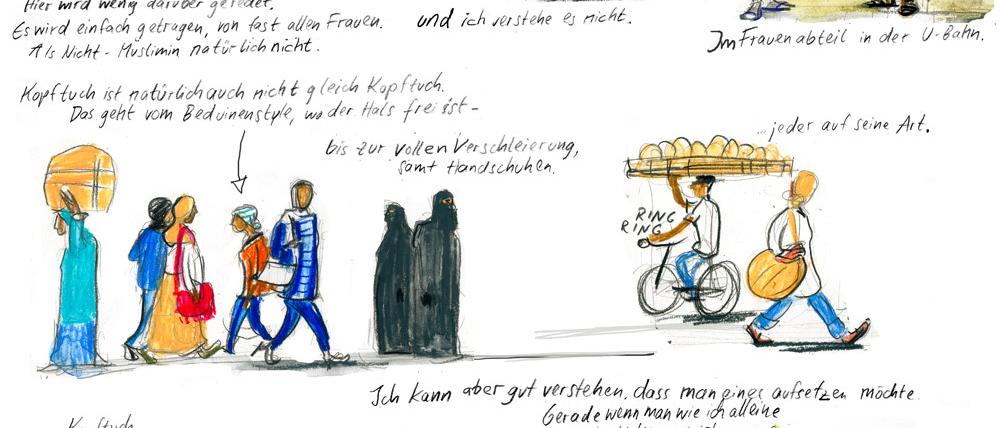 Hier wird wenig darüber geredet.
Es wird einfach getragen, von fast allen Frauen.
Als Nicht-Muslimin natürlich nicht.
und ich verstehe es nicht.
Im Frauenabteil in der U-Bahn.
Kopftuch ist natürlich auch nicht gleich Kopftuch.
Das geht vom Beduinenstyle, wo der Hals frei ist -
bis zur vollen Verschleierung,
samt Handschuhen.
...jeder auf seine Art.
RING
RING
Ich kann aber gut verstehen, dass man eines aufsetzen möchte.
Gerade wenn man wie ich alleine